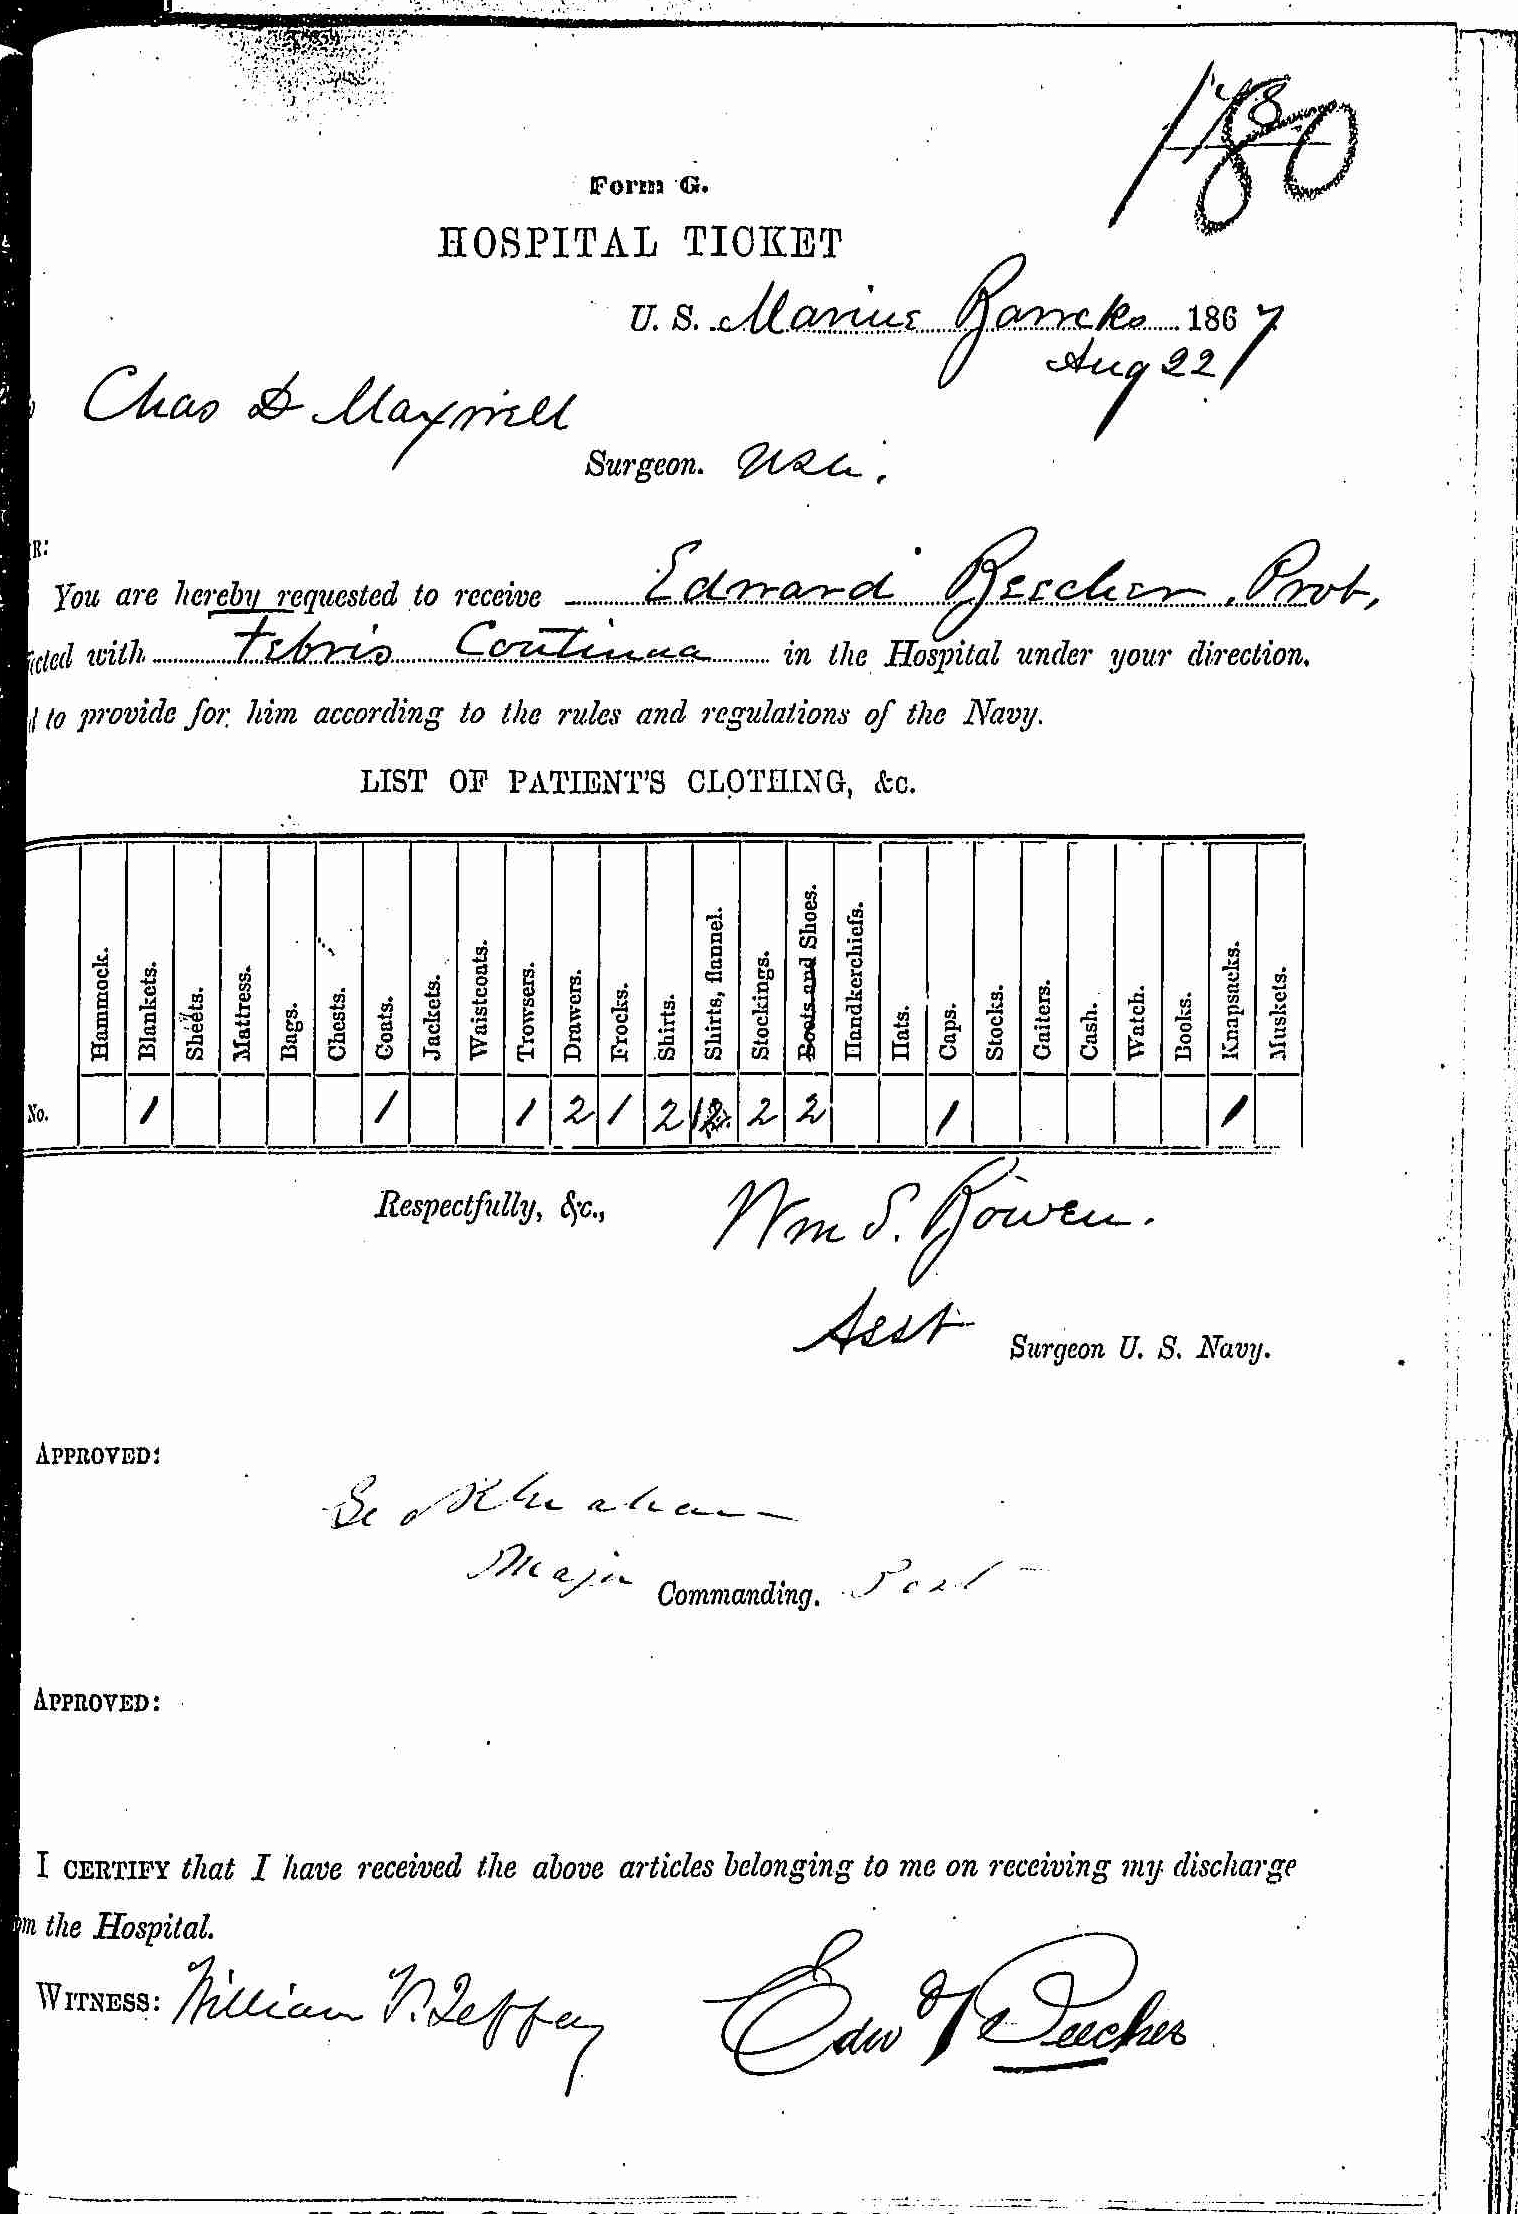 180
Form G.
HOSPITAL TICKET
U. S. Marine Barracks 1867
Aug 22
Chas D Maxwell
Surgeon. USN.
R:
You are hereby requested to receive Edward Beecher, Prvt,
icted with Febris Continua in the Hospital under your direction.
d to provide for him according to the rules and regulations of the Navy.
LIST OF PATIENT'S CLOTHING, &c.
Hammock. Blankets. Sheets. Mattress. Bags. Chests. Coats. Jackets. Waistcoats. Trowsers. Drawers. Frocks. Shirts. Shirts, flannel. Stockings. Boots and Shoes. Handkerchiefs. Hats. Caps. Stocks. Gaiters. Cash. Watch. Books. Knapsacks. Muskets.
No. 1 1 1 2 1 2 2 2 1 1
Respectfully, &c., Wm S. Bowen.
Asst Surgeon U. S. Navy.
APPROVED:
Geo R Graham
Major Commanding. Post
APPROVED:
I CERTIFY that I have received the above articles belonging to me on receiving my discharge
om the Hospital.
WITNESS: William V. Edw Beecher